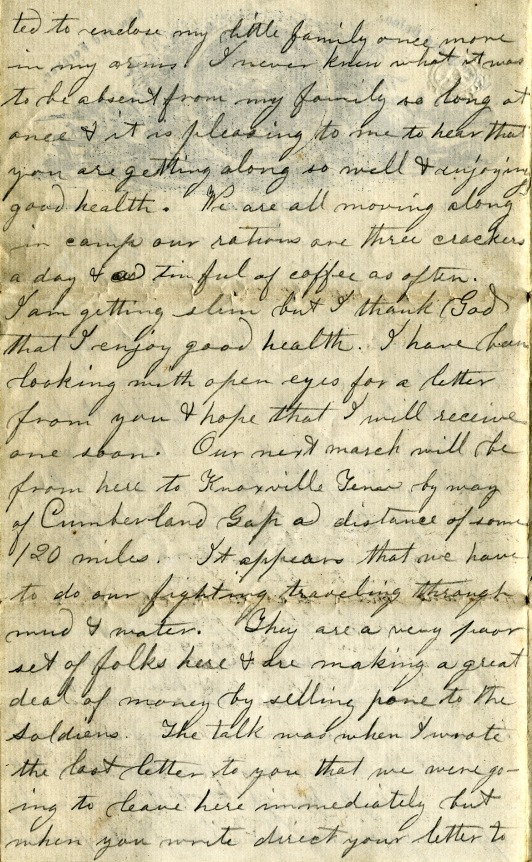 ted to enclose my little family once more
in my arms I never knew what it was
to be absent from my family so long at
once & it is pleasing to me to hear that
you are getting along so well & enjoying
good health. We are all moving along
in camp our rations are three crackers
a day & a tinful of coffee as often.
I am getting slim but I thank God
that I enjoy good health. I have been
looking with open eyes for a letter
from you & hope that I will receive
one soon. Our next march will be
from here to Knoxville Tenn by way
of Cumberland Gap a distance of some
120 miles. It appears that we have
to do our fighting traveling through
mud & water. They are a very poor
set of folks here & are making a great
deal of money by selling pone to the
Soldiers. The talk was when I wrote
the last letter to you that we were go-
ing to leave here immediately but
when you write direct your letter to